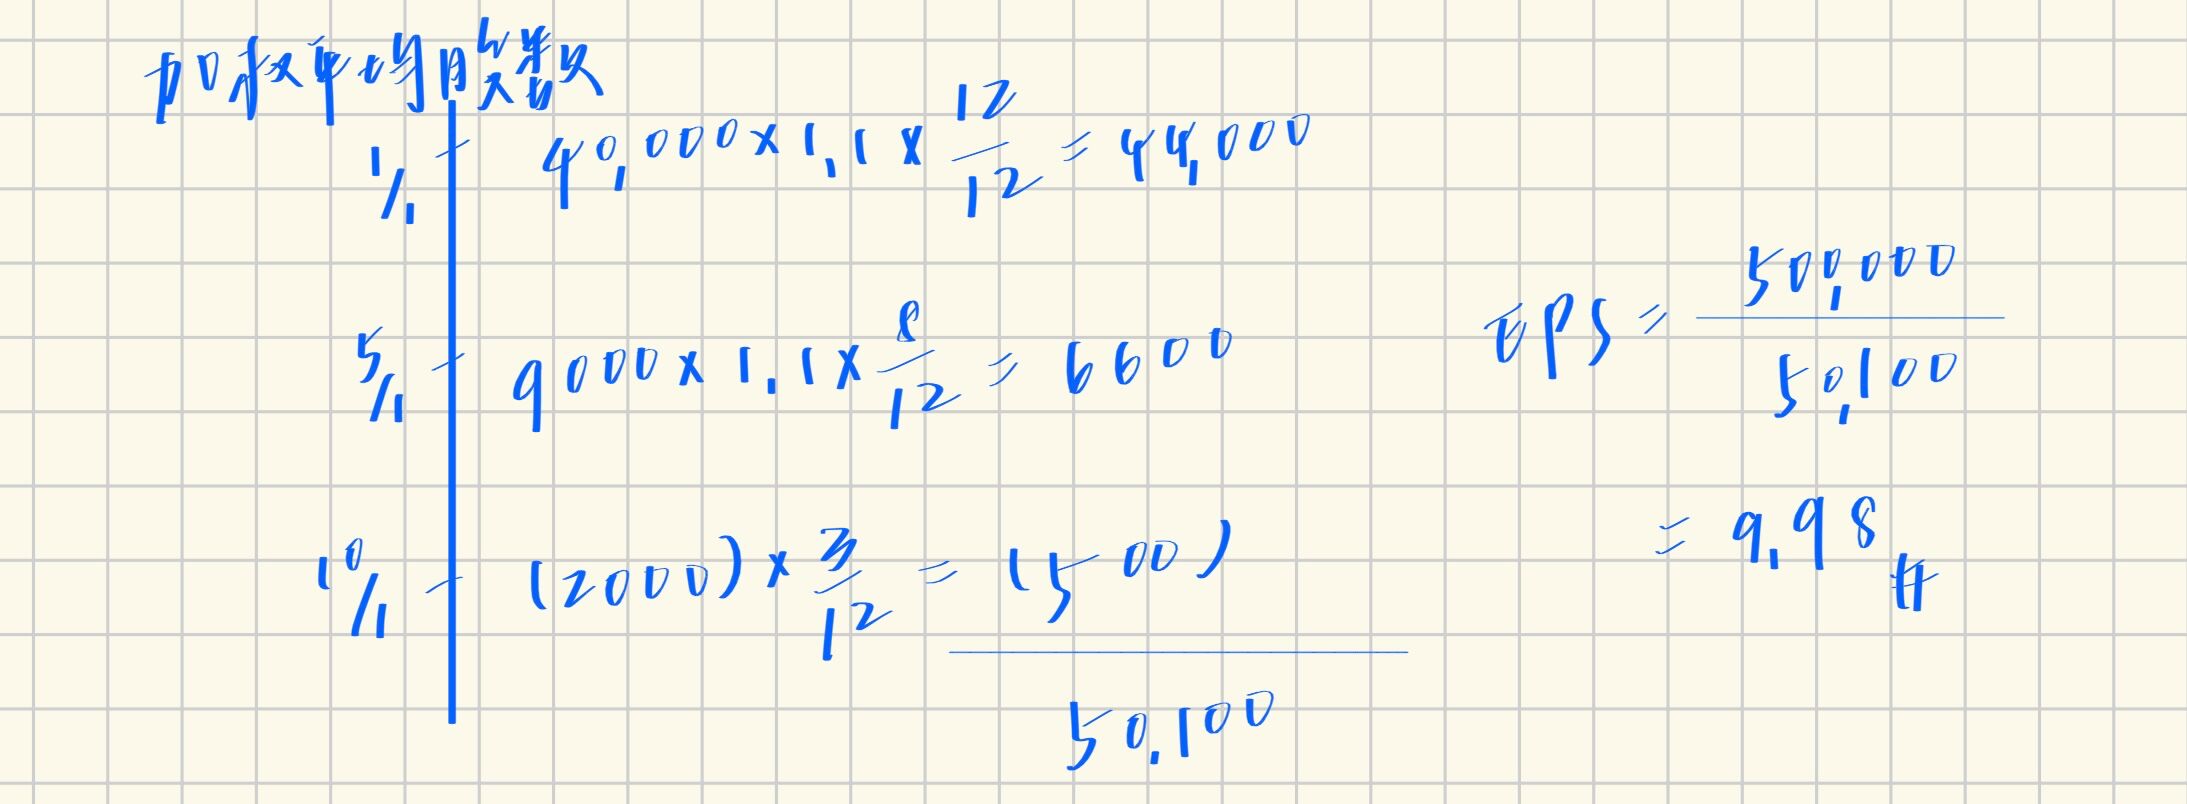 加權平均股數
1/1 - 40,000 × 1.1 × 12/12 = 44,000
5/1 - 9000 × 1.1 × 8/12 = 6600
10/1 - (2000) × 3/12 = (500)
50,100
EPS = 500,000/50,100
= 9.98 #